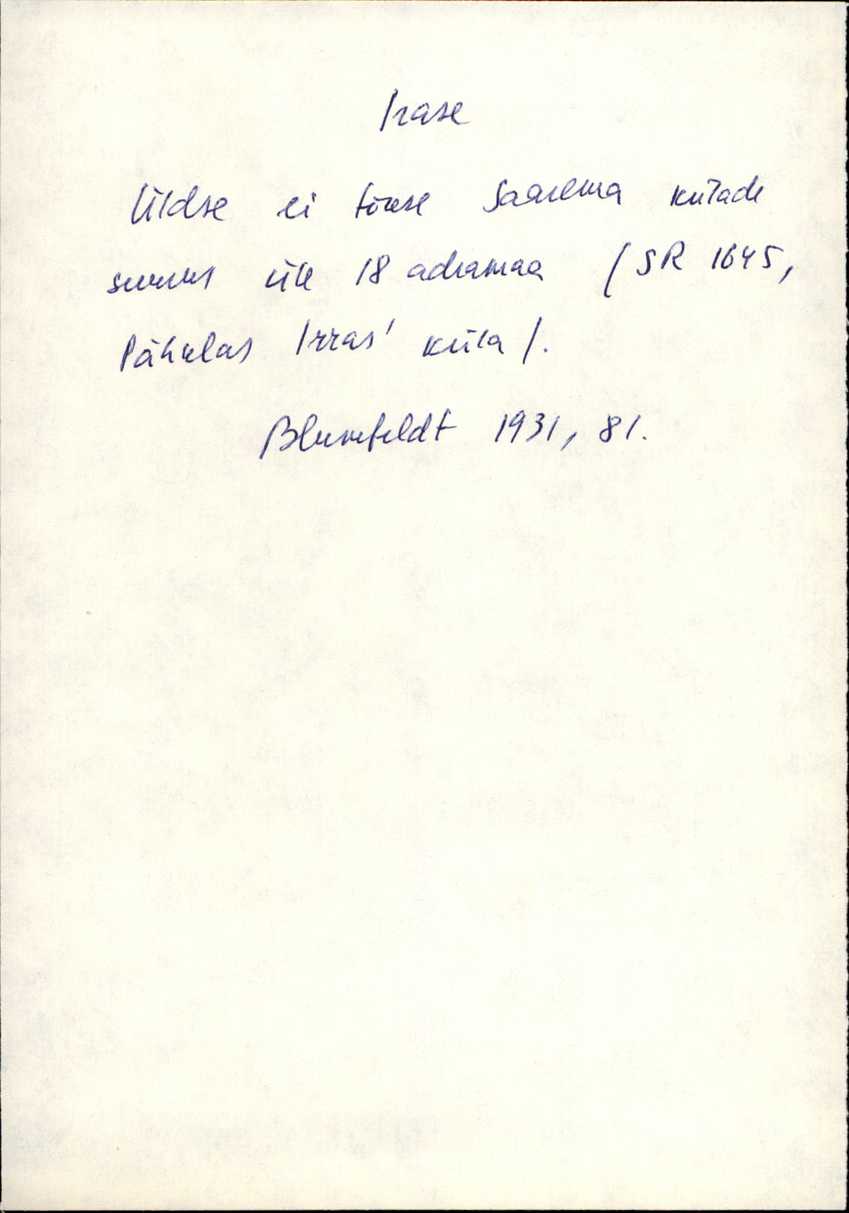 Irase
Üldse ei tõuse Saaremaa külade
suurus üle 18 adramaa (SR 1645,
Pähklas Irras' küla).
Blumfeldt 1931, 81.